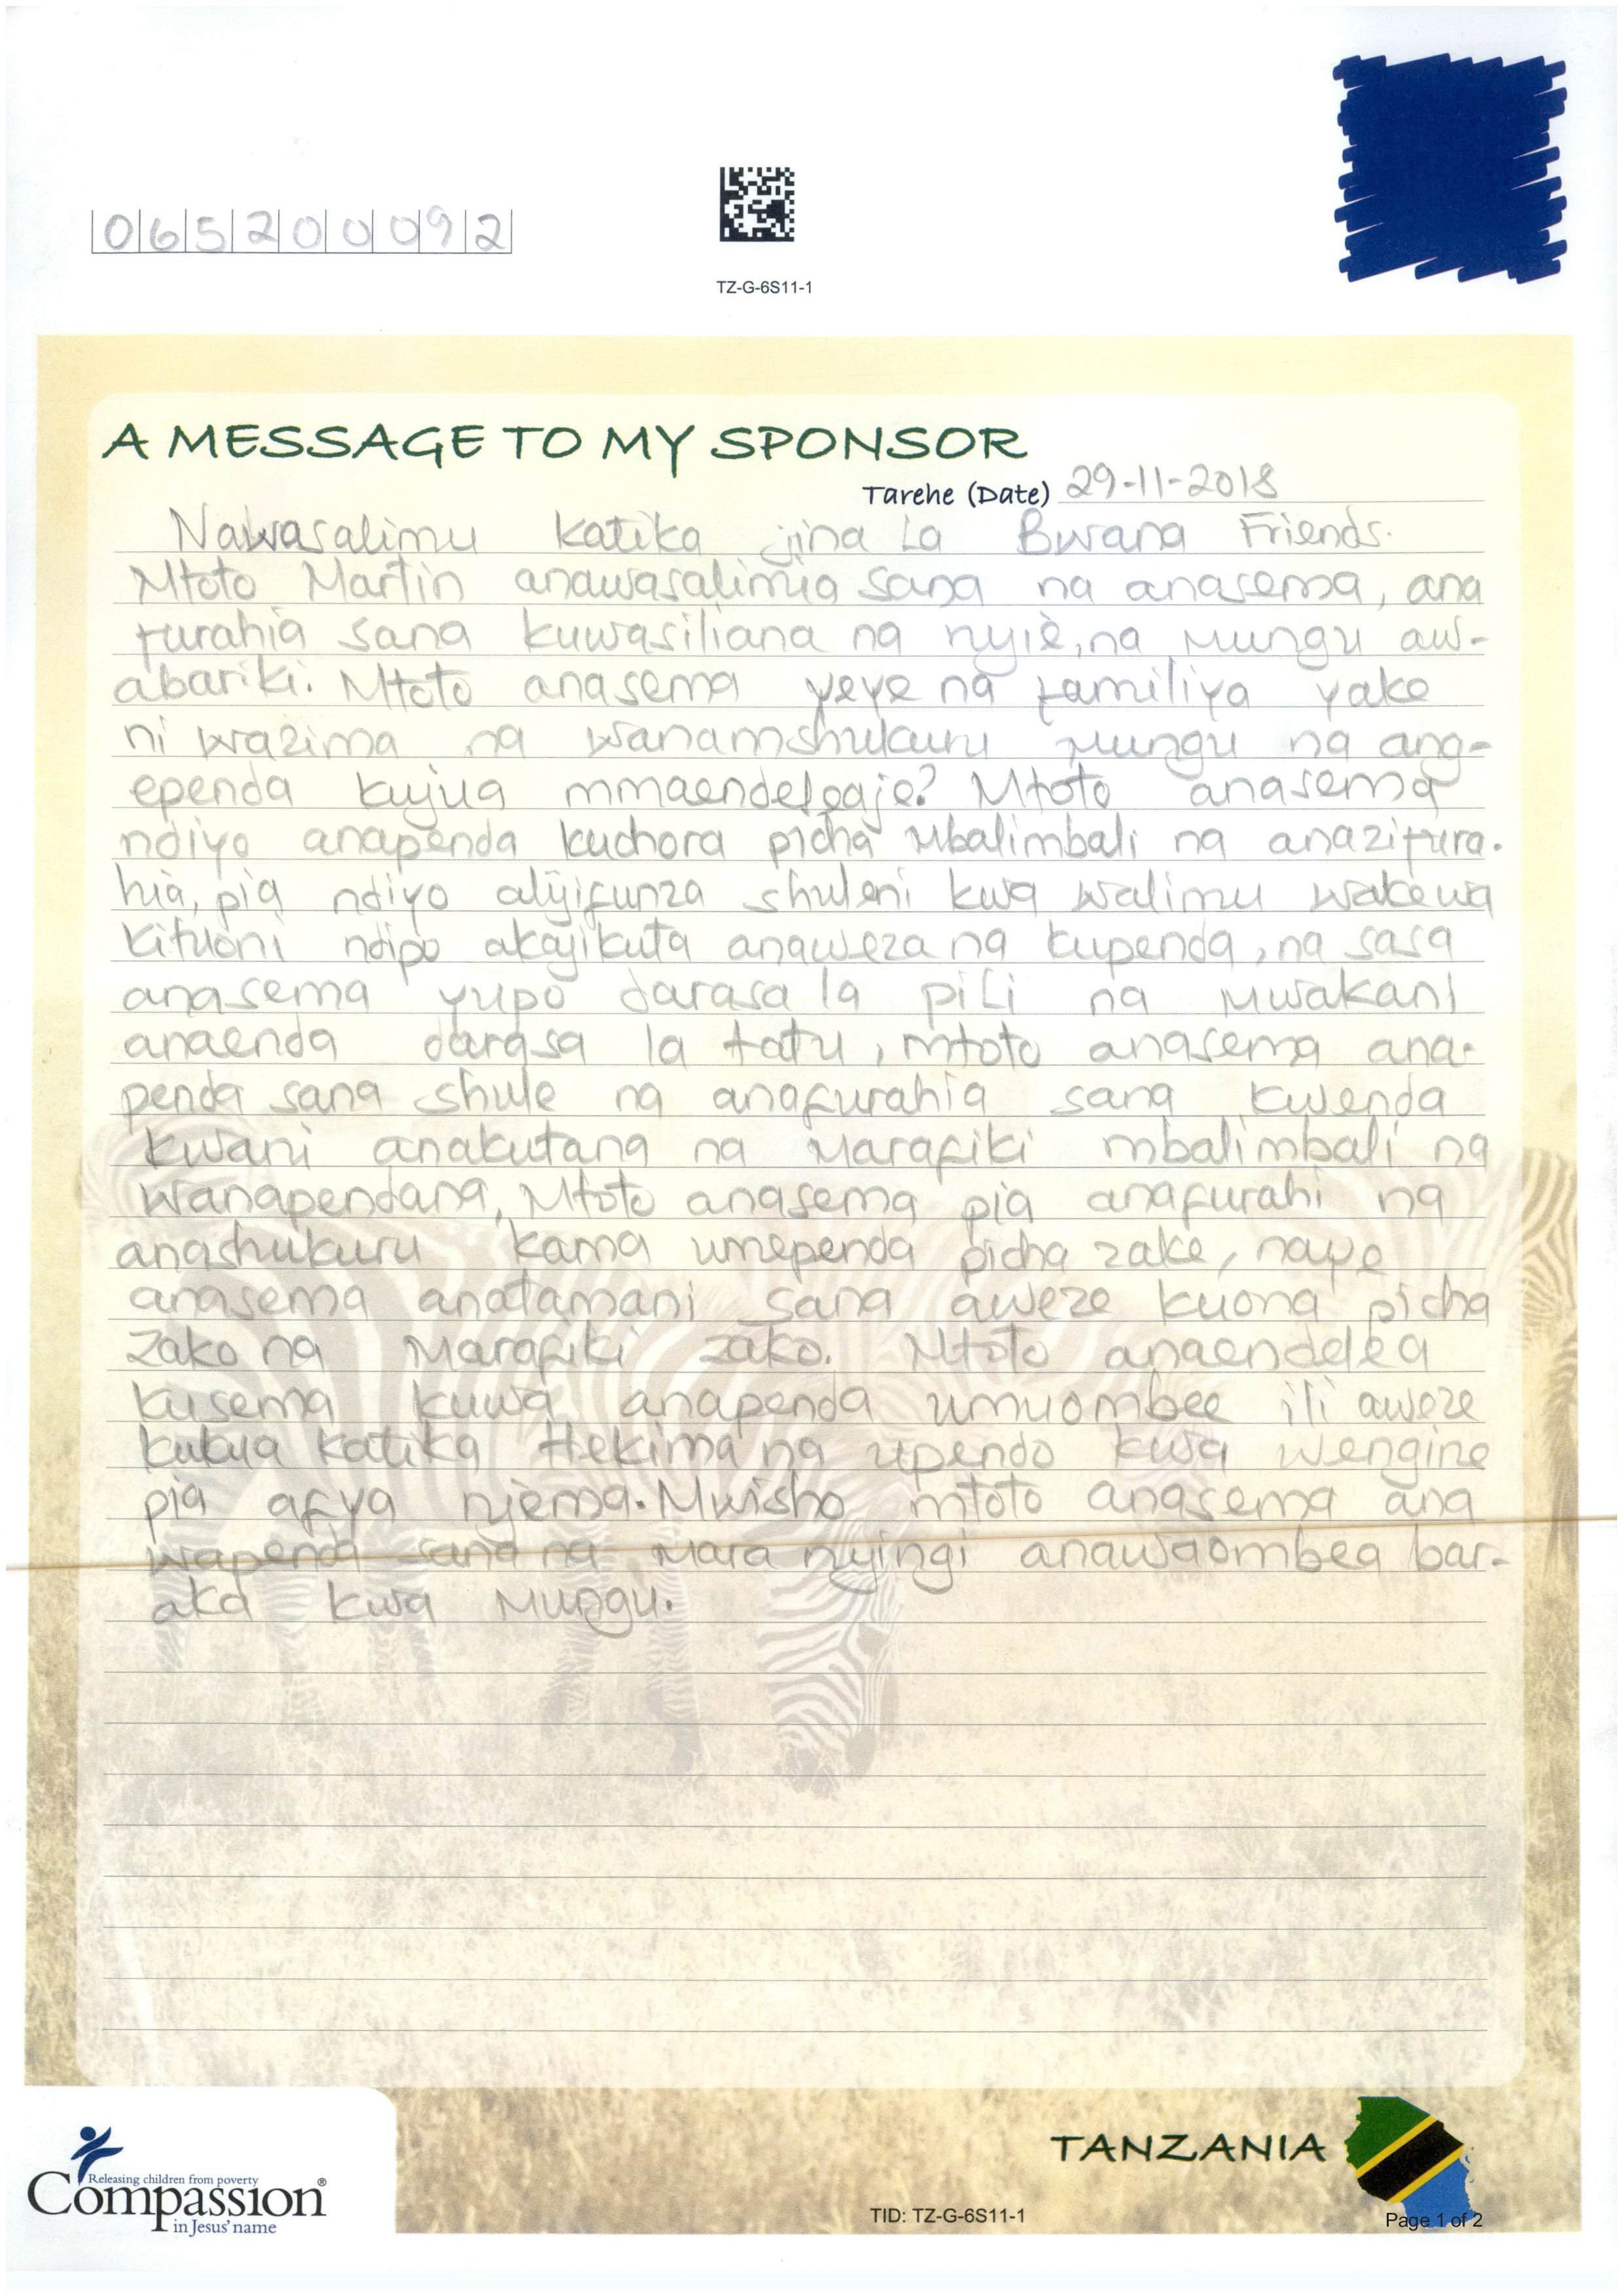 065200092
TZ-G-6S11-1
A MESSAGE TO MY SPONSOR
Tarehe (Date) 29-11-2018
Nawasalimu katika jina La Bwana Friends.
Mtoto Martin anawasalimia sana na anasema, ana
furahia sana kuwasiliana na nyie, na Mungu aw-
abariki. Mtoto anasema yeye na familiya yake
ni wazima na wanamshukuru Mungu na ang-
ependa kujua mmaendeleaje? Mtoto anasema
ndiyo anapenda kuchora picha Mbalimbali na anazifura.
hia, pia ndiyo alijifunza shuleni kwa walimu wake wa
kituoni ndipo akajikuta anaweza na kupenda, na sasa
anasema yupo darasa la pili na Mwakani
anaenda darasa la tatu, mtoto anasema ana-
penda sana shule na anafurahia sana kwenda
kwani anakutana na Marafiki mbalimbali na
wanapendana, Mtoto anasema pia anafurahi na
anashukuru kama umependa picha zake, naye
anasema anatamani sana aweze kuona picha
zako na Marafiki zako. Mtoto anaendelea
kusema kuwa anapenda umuombee ili aweze
kukua katika Hekima na upendo kwa wengine
pia afya njema. Mwisho mtoto anasema ana
wapenda sana na Mara nyingi anawaombea bar-
aka kwa Mungu.
TANZANIA
Releasing children from poverty
Compassion®
in Jesus' name
TID: TZ-G-6S11-1
Page 1 of 2